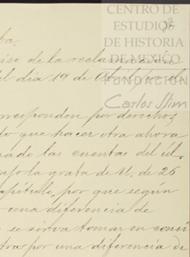 CENTRO DE
ESTUDIOS
DE HISTORIA
DE MÉXICO
FUNDACIÓN
Carlos Slim
ta:
so de la reclamación
el día 19 de
corresponden por derechos
lo que hacer otra ahora
nado las cuentas del últ
la grata de 11, de 26
capítulo, por que según
una diferencia de
se sirva tomar en consi
tra por una diferencia de